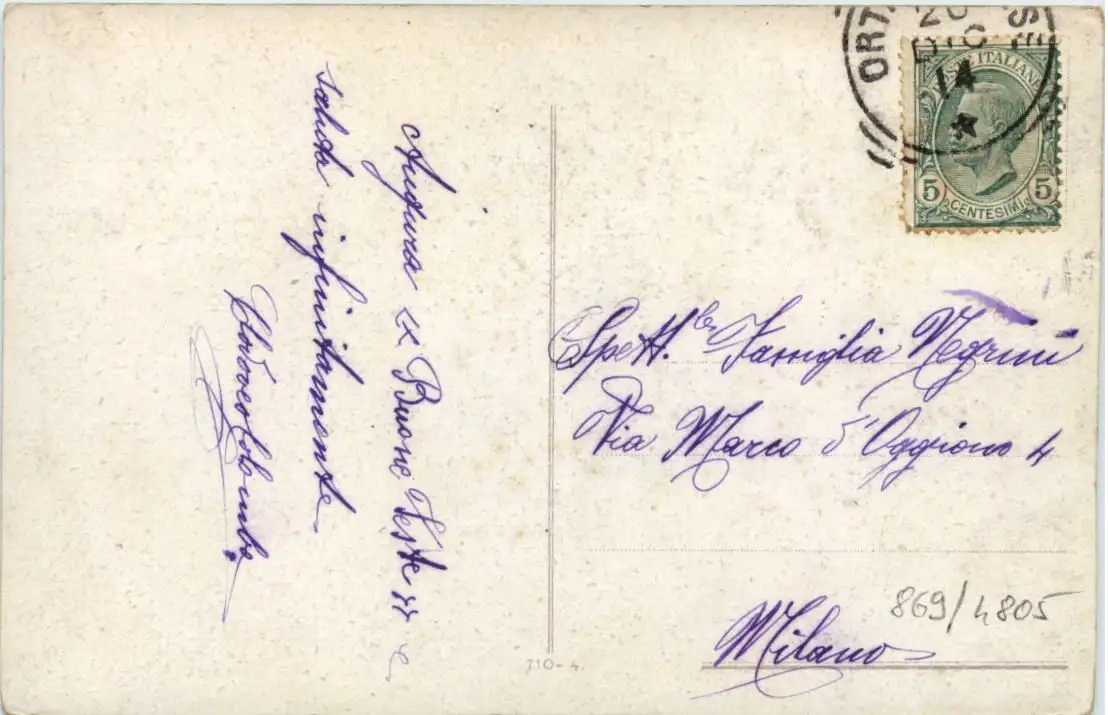 Augura le Buone Feste e
saluta infinitamente
Colombo
ORT
20
DIC
14
SE
POSTE ITALIANE
5 CENTESIMI 5
Spett.le Famiglia Negrini
Via Marco d'Oggiono 4
Milano
869/4805
710-4.